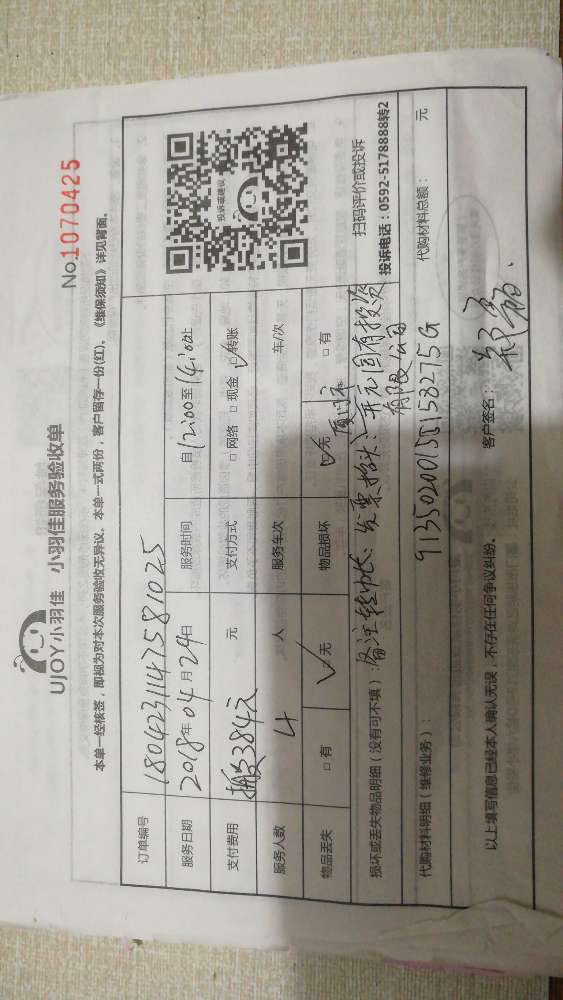 UJOY小羽佳 小羽佳服务验收单
No.1070425
本单一经核签，即视为对本次服务验收无异议。本单一式两份，客户留存一份(红)。《维保须知》详见背面。
订单编号 180423114758 1025
服务日期 2018年04月24日 服务时间 自12:00至14:00止
支付费用 搬家384元 元 支付方式 □网络 □现金 ☑转账
服务人数 4 人 服务车次 车/次
物品丢失 □有 ☑无 物品损坏 ☑无 □有
投诉或建议
扫码评价或投诉
投诉电话：0592-5178888转2
损坏或丢失物品明细（没有可不填）：备注转帐：发票抬头：厦门市开元国有投资
有限公司
91350200155158275G
代购材料明细（维修业务）： 代购材料总额： 元
以上填写信息已经本人确认无误，不存在任何争议纠纷。 客户签名：